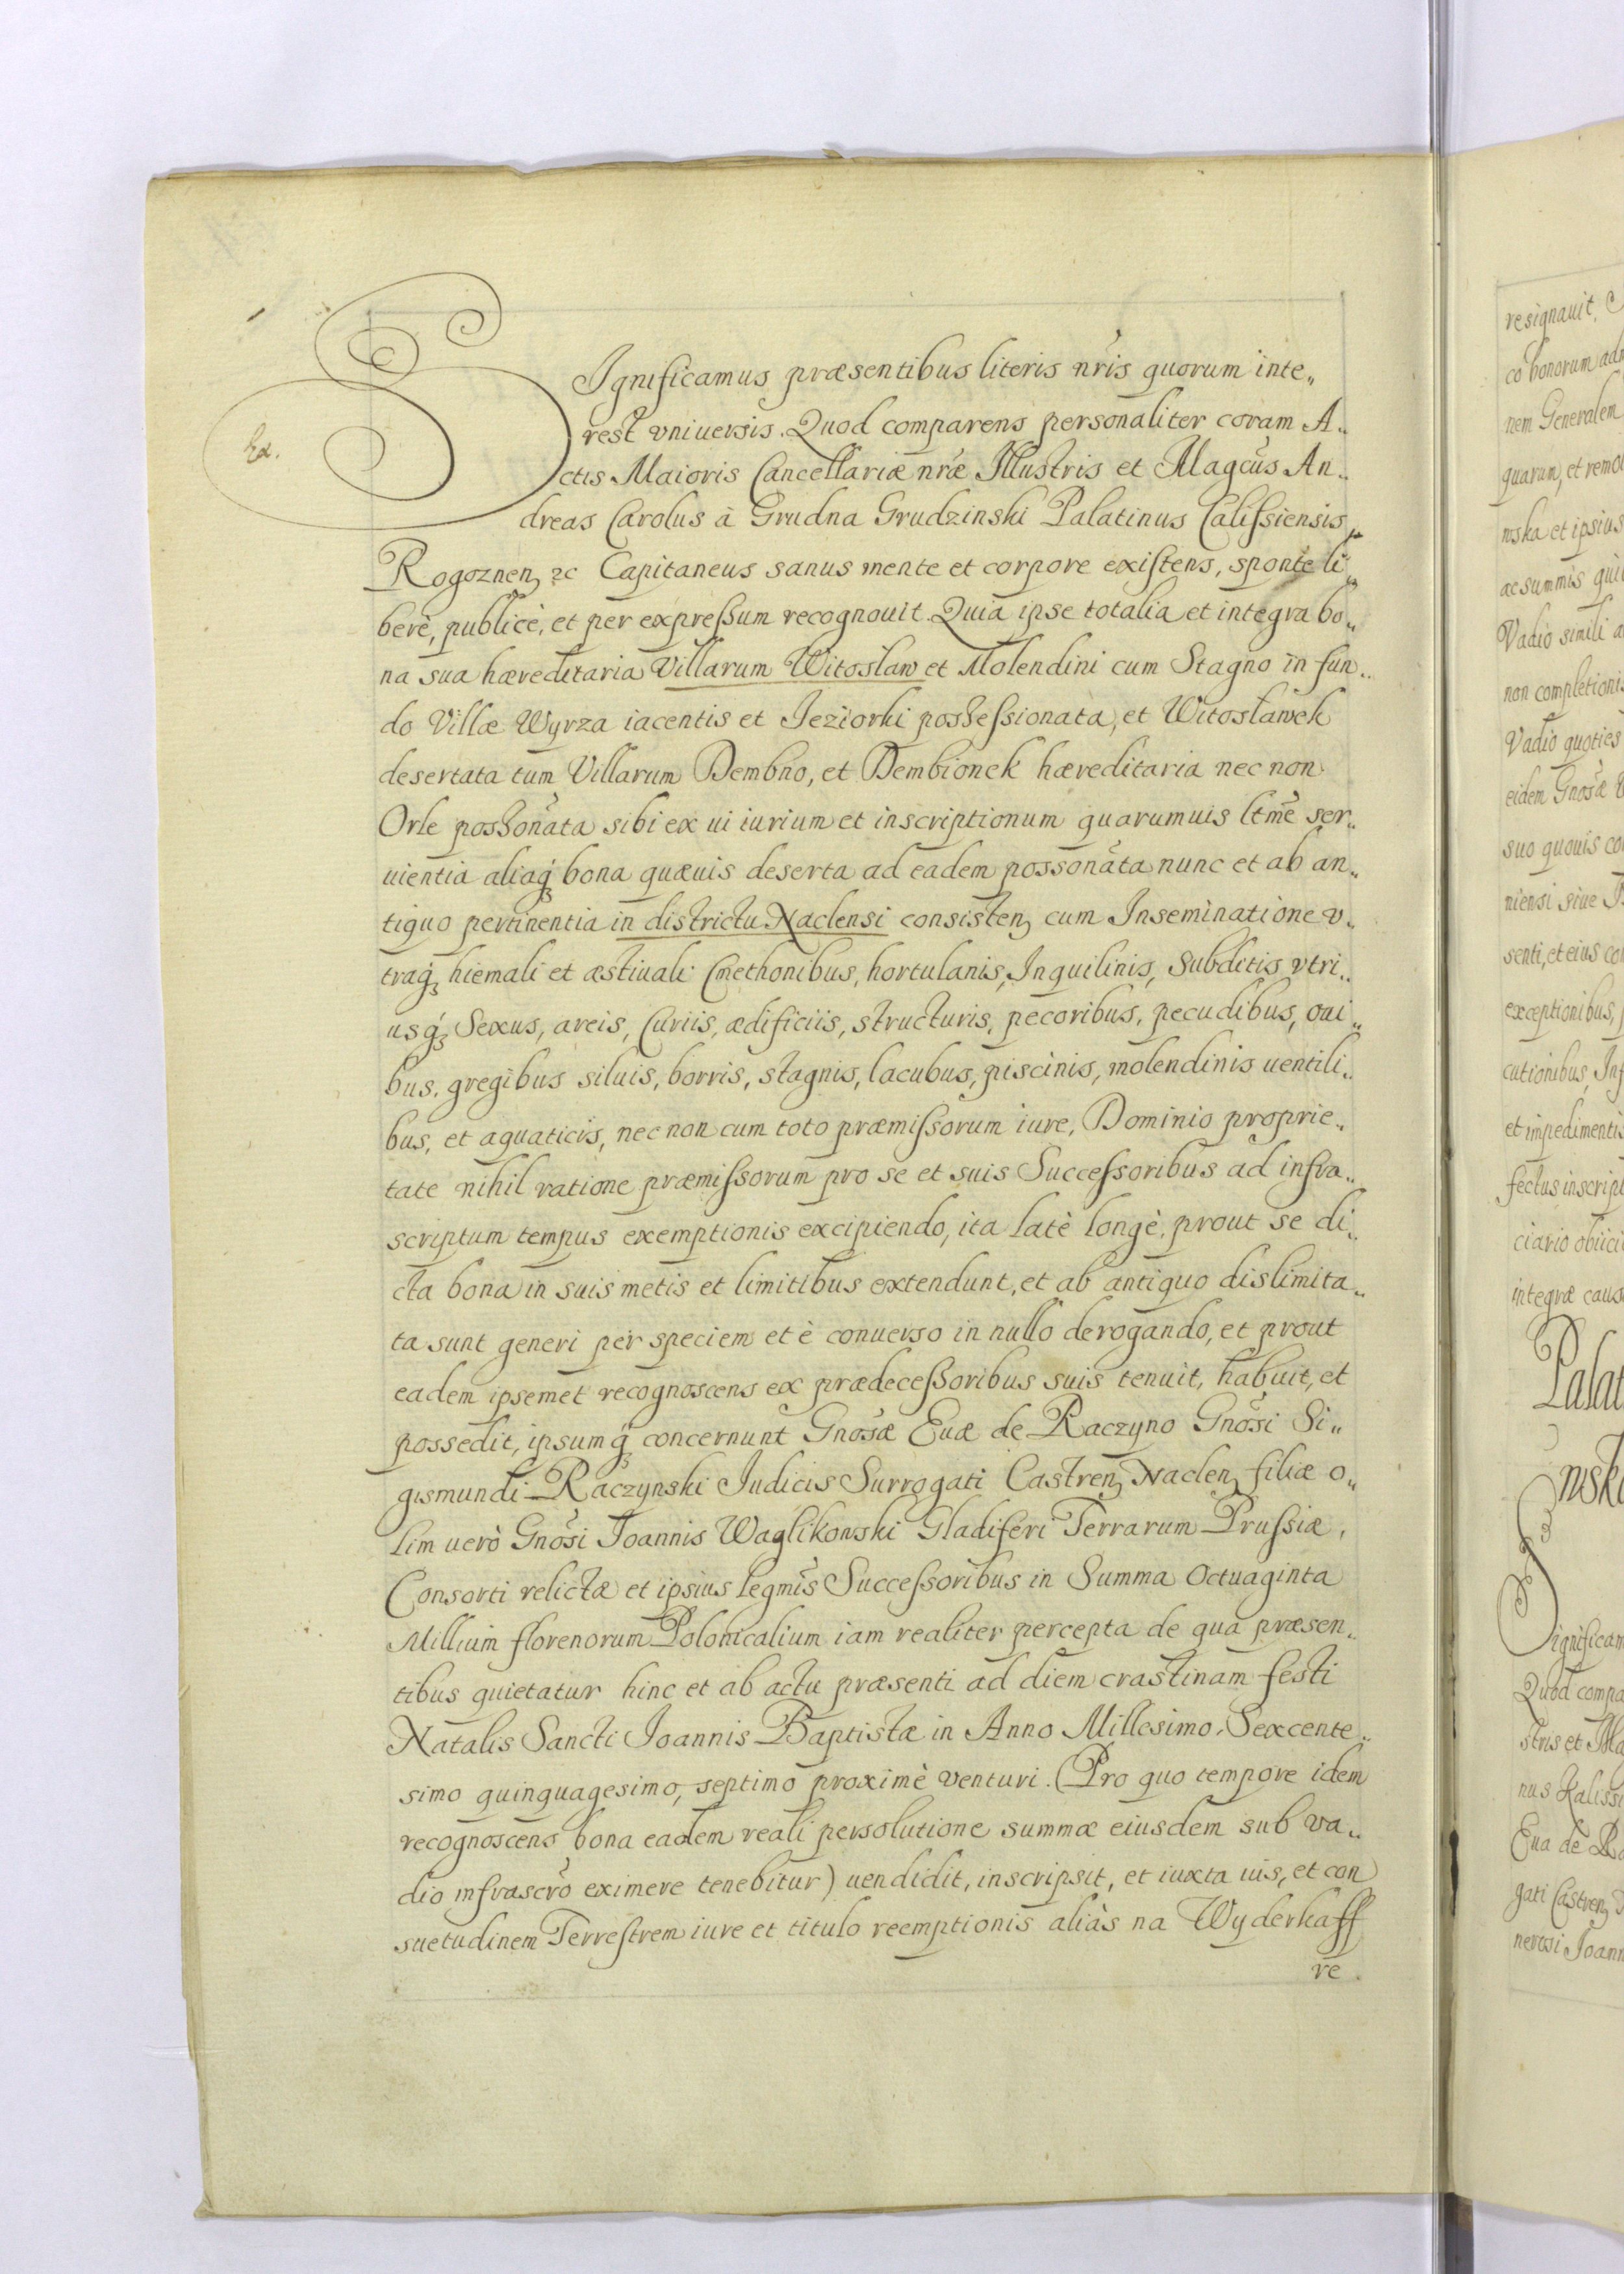 SIgnificamus præsentibus literis nr̃is quorum inte„
rest vniuersis. Quod comparens personaliter coram A„
Ex.
ctis Maioris Cancellariæ nr̃æ Illustris et Magcũs An„
dreas Carolus à Grudna Grudzinski Palatinus Calissiensis
Rogoznen, &c Capitaneus sanus mente et corpore existens, sponte li„
berè, publicè, et per expressum recognouit. Quia ipse totalia et integra bo„
na sua hæreditaria Villarum Witosław et Molendini cum Stagno in fun„
do Villæ Wyrza iacentis et Jeziorki possessionata, et Witosławek
desertata tum Villarum Dembno, et Dembionek hæreditaria nec non
Orle possoñata sibi ex ui iurium et inscriptionum quarumuis ltm̃e ser„
uientia aliaqꝫ bona quæuis deserta ad eadem possonãta nunc et ab an„
tiquo pertinentia in districtu Naclensi consisten, cum Inseminatione v„
traqꝫ hiemali et æstiuali Cmethonibus, hortulanis, Inquilinis, Subditis vtri„
usqꝫ Sexus, areis, Curiis, ædificiis, structuris, pecoribus, pecudibus, oui„
bus, gregibus siluis, borris, stagnis, lacubus, piscinis, molendinis uentili„
bus, et aquaticis, nec non cum toto præmissorum iure, Dominio proprie„
tate nihil ratione præmissorum pro se et suis Successoribus ad infra„
scriptum tempus exemptionis excipiendo, ita latè longè, prout se di„
cta bona in suis metis et limitibus extendunt, et ab antiquo dislimita„
ta sunt generi per speciem et è conuerso in nullo derogando, et prout
eadem ipsemet recognoscens ex prædecessoribus suis tenuit, habuit, et
possedit, ipsumqꝫ concernunt Gnosæ̃ Euæ de Raczyno Gnosĩ Si„
gismundi Raczynski Iudicis Surrogati Castren, Naclen, filiæ o„
lim uerò Gnosĩ Joannis Waglikowski Gladiferi Terrarum Prussiæ,
Consorti relictæ et ipsius legmĩs Successoribus in Summa Octuaginta
Millium florenorum Polonicalium iam realiter percepta de qua præsen„
tibus quietatur hinc et ab actu præsenti ad diem crastinam festi
Natalis Sancti Joannis Baptistæ in Anno Millesimo Sexcente„
simo quinquagesimo septimo proximè venturi. (Pro quo tempore idem
recognoscens bona eadem reali persolutione summæ eiusdem sub va„
dio infrascrõ eximere tenebitur) uendidit, inscripsit, et iuxta ius, et con
suetudinem Terrestrem iure et titulo reemptionis aliàs na Wyderkaff
re
resignauit,
co bonorum
nem Generalem
quarum, et
nska et ipsius
ac summis
Vadio simili
non completionis
Vadio quoties
eidem Gnosæ̃
suo quouis
niensi siue
senti, et eius
exceptionibus,
cutionibus,
et impedimentis
fectus
ciario
integræ
nska
Significam
Quod
stris et
nus
Eua de
gati Castren,